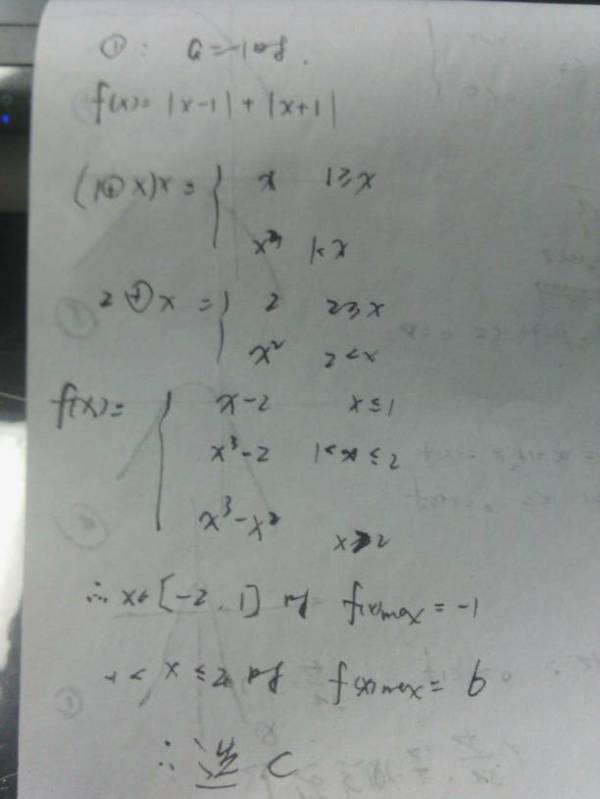 ①: a=-1时.
f(x)=|x-1|+|x+1|
(1⊕x)x={ x 1≥x
x³ 1<x
2⊕x={ 2 2≥x
x² 2<x
f(x)={ x-2 x≤1
x³-2 1<x≤2
x³-x² x>2
∴x∈[-2,1]时 f(x)max=-1
1<x≤2时 f(x)max=6
∴选C